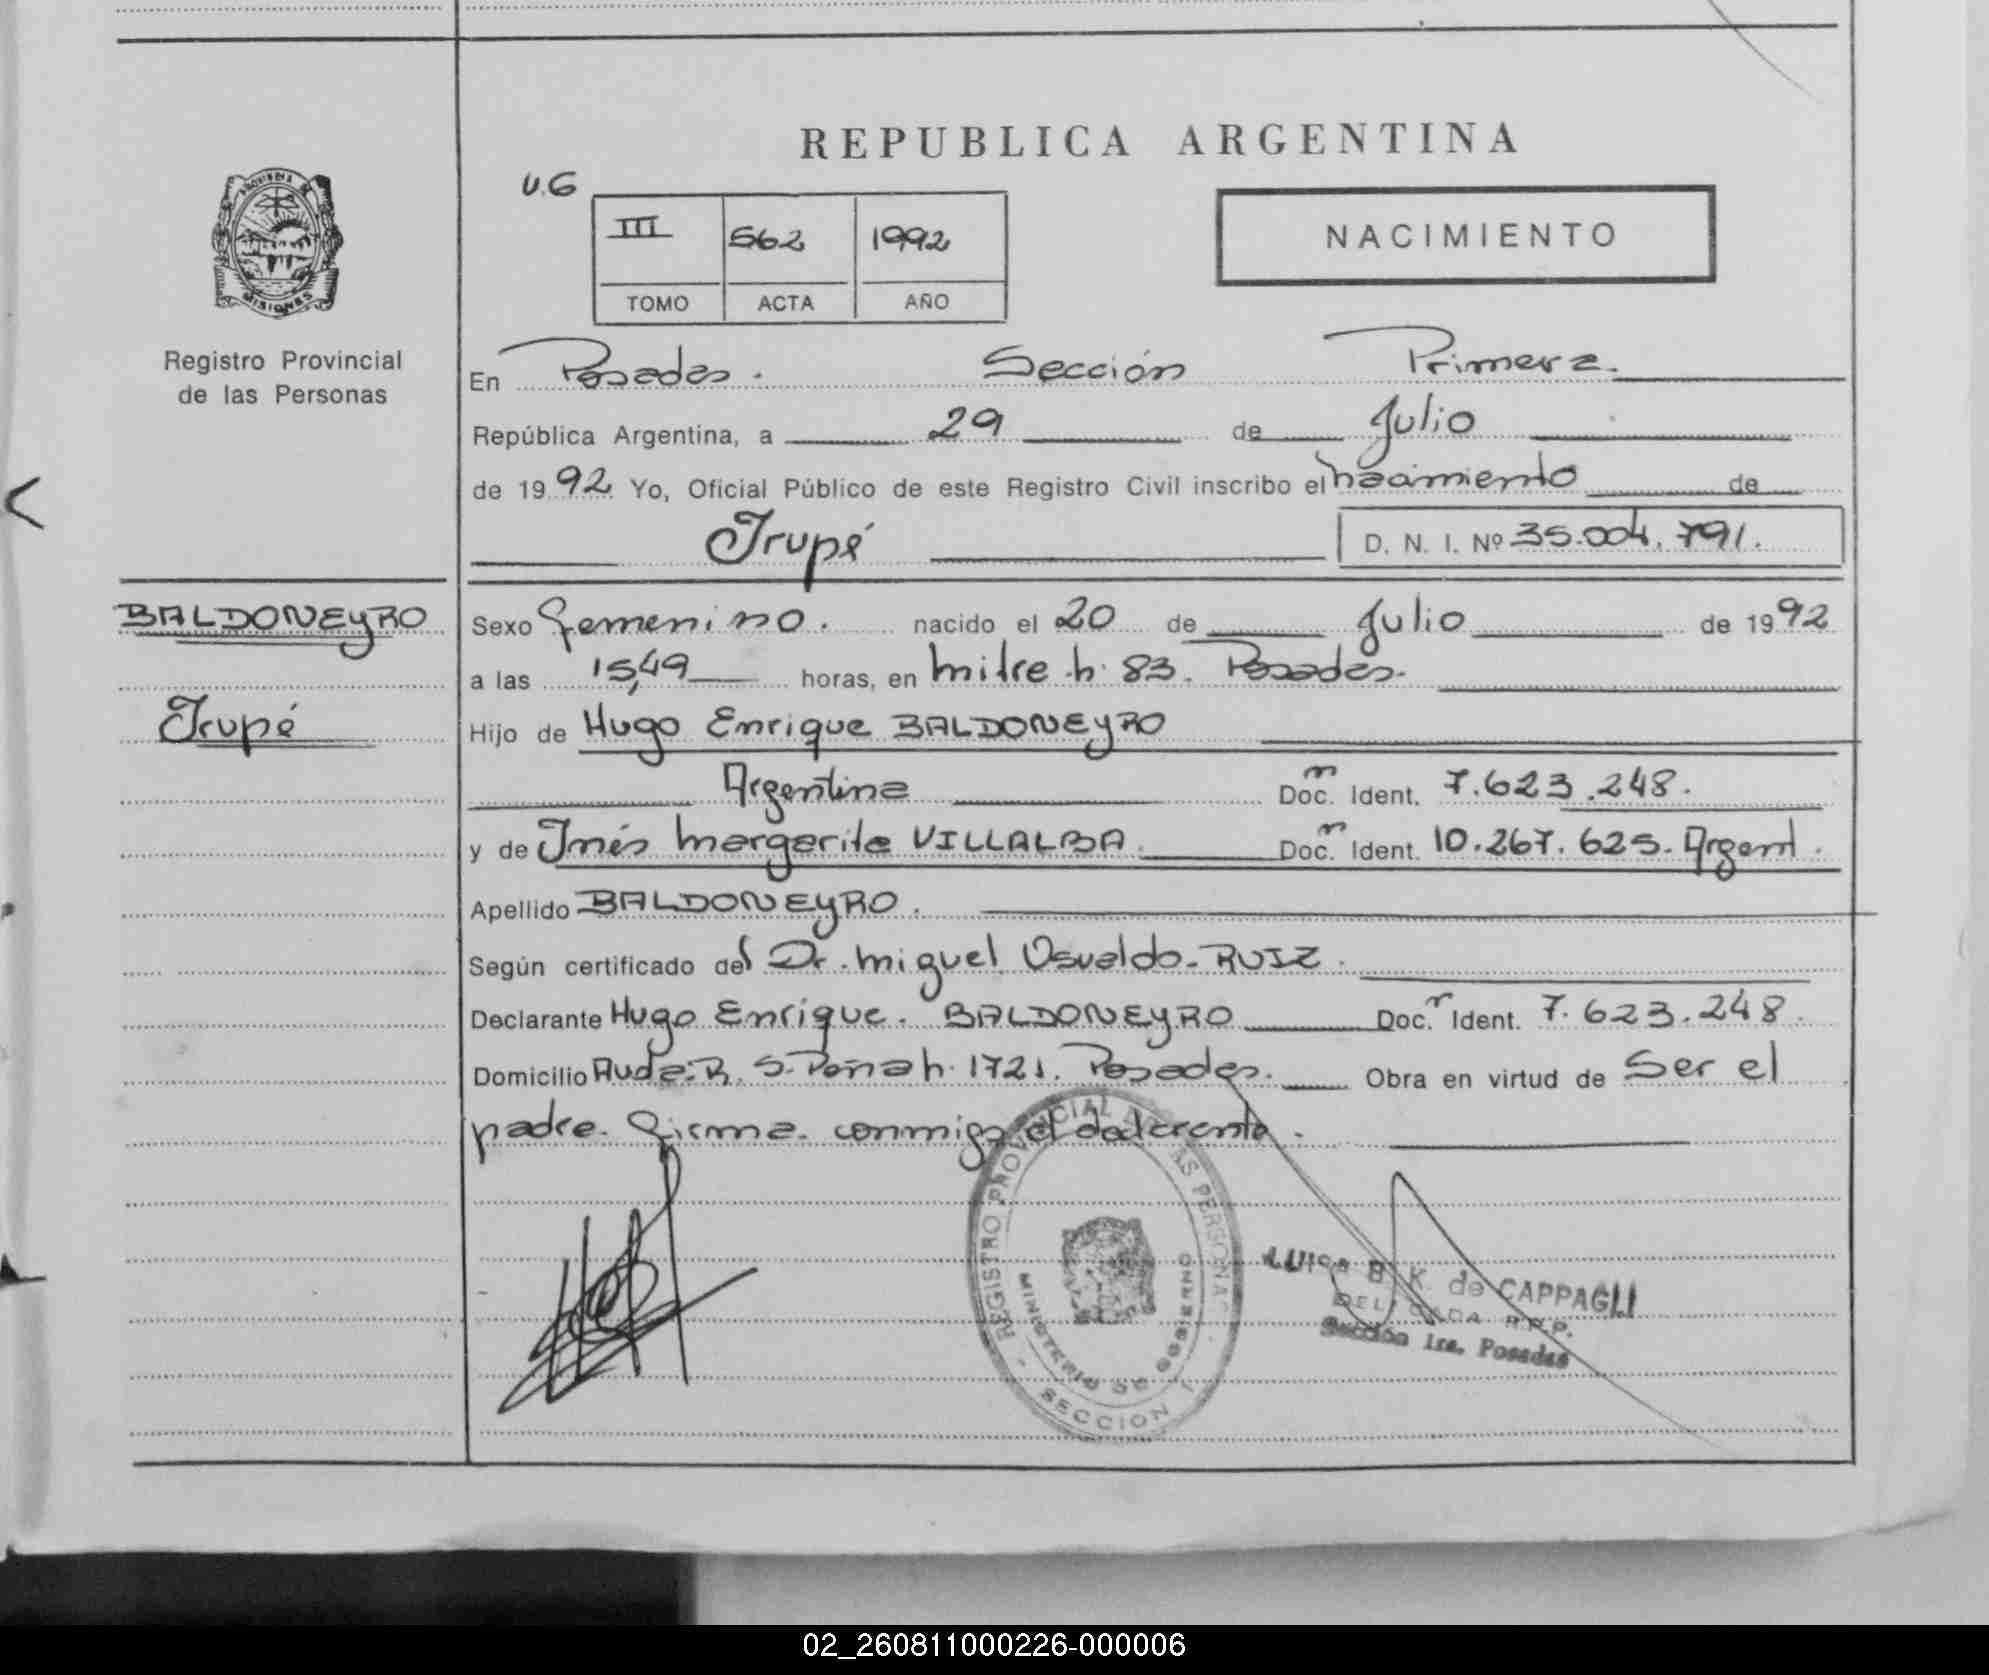 REPUBLICA ARGENTINA
U.G
III 562 1992
TOMO ACTA AÑO
NACIMIENTO
MISIONES
Registro Provincial
de las Personas
En Posadas. Sección Primera.
República Argentina, a 29 de Julio
de 1992 Yo, Oficial Público de este Registro Civil inscribo el nacimiento de
Irupé D. N. I. Nº 35.004.791.
BALDONEYRO
Irupé
Sexo Femenino. nacido el 20 de Julio de 1992
a las 15,49 horas, en Mitre h. 83. Posadas.
Hijo de Hugo Enrique BALDONEYRO
Argentina Doc. Ident. 7.623.248.
y de Inés Margarita VILLALBA. Doc. Ident. 10.267.625. Argent.
Apellido BALDONEYRO.
Según certificado del Dr. Miguel Osvaldo RUIZ.
Declarante Hugo Enrique. BALDONEYRO Doc. Ident. 7.623.248.
Domicilio Avda. R. S. Peña h. 1721. Posadas. Obra en virtud de Ser el
padre. Firma conmigo el declarante.
REGISTRO PROVINCIAL DE LAS PERSONAS
MINISTERIO DE GOBIERNO
SECCION 1
LUISA B. K. de CAPPAGLI
DELEGADA R.P.P.
Sección 1ra. Posadas
02_260811000226-000006